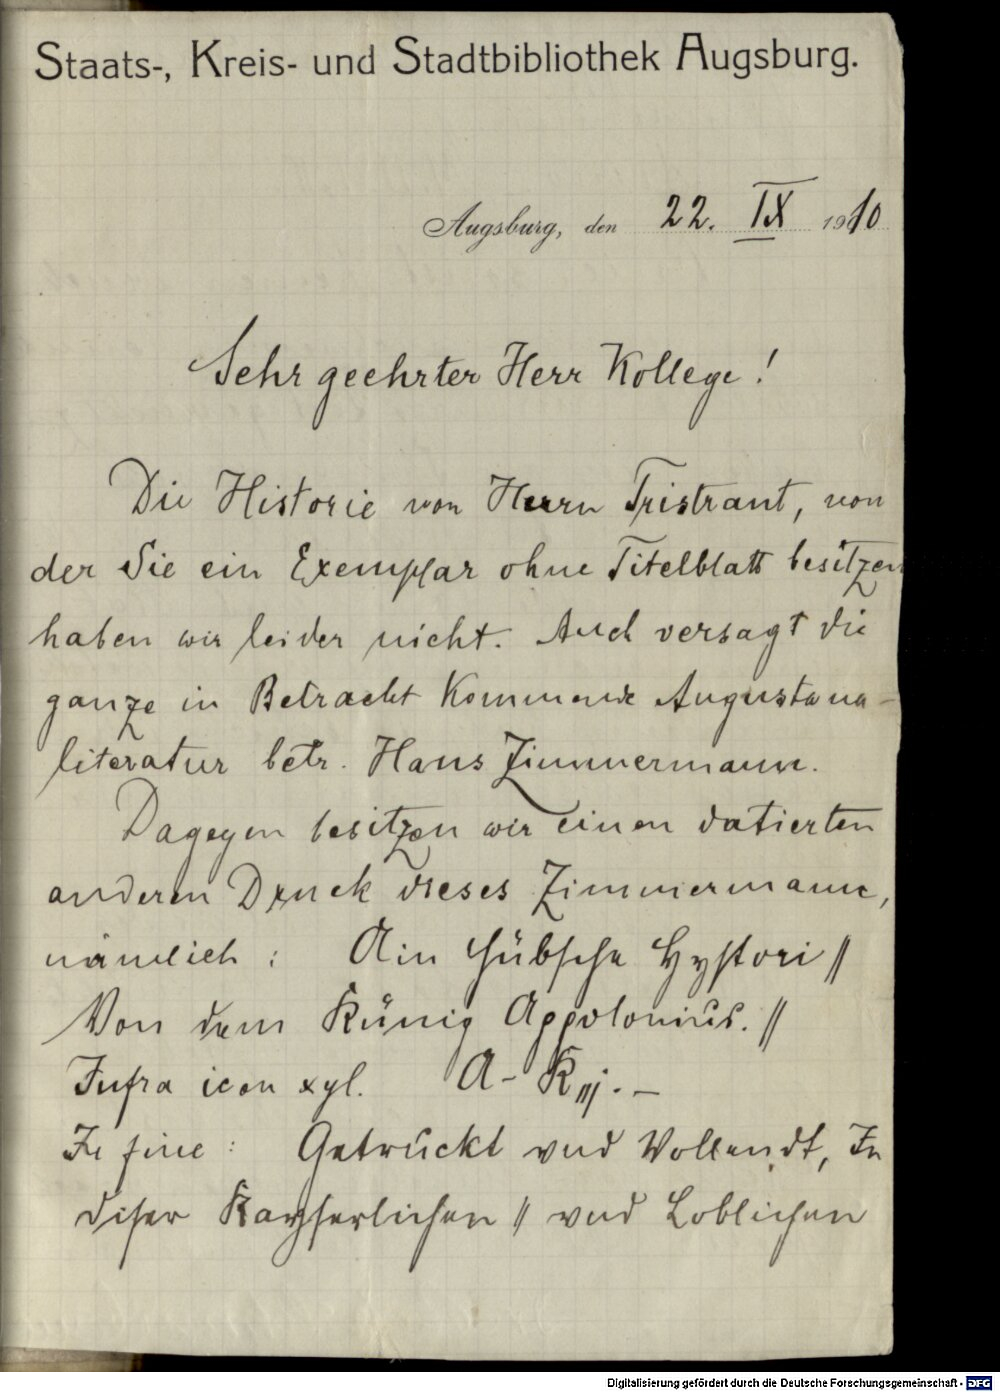 Staats-, Kreis- und Stadtbibliothek Augsburg.
Augsburg, den 22. IX 1910
Sehr geehrter Herr Kollege!
Die Historie von Herrn Tristrant, von
der Sie ein Exemplar ohne Titelblatt besitzen
haben wir leider nicht. Auch versagt die
ganze in Betracht kommende Augustana-
literatur betr. Hans Zimmermann.
Dagegen besitzen wir einen datierten
anderen Druck dieses Zimmermann,
nämlich: Ain hübsche Hystori //
Von dem Künig Appolonius. //
Infra icon xyl. A - K iij. —
In fine: Getruckt vnd Vollendt, In
diser Kayserlichen // vnd Loblichen
Digitalisierung gefördert durch die Deutsche Forschungsgemeinschaft - DFG